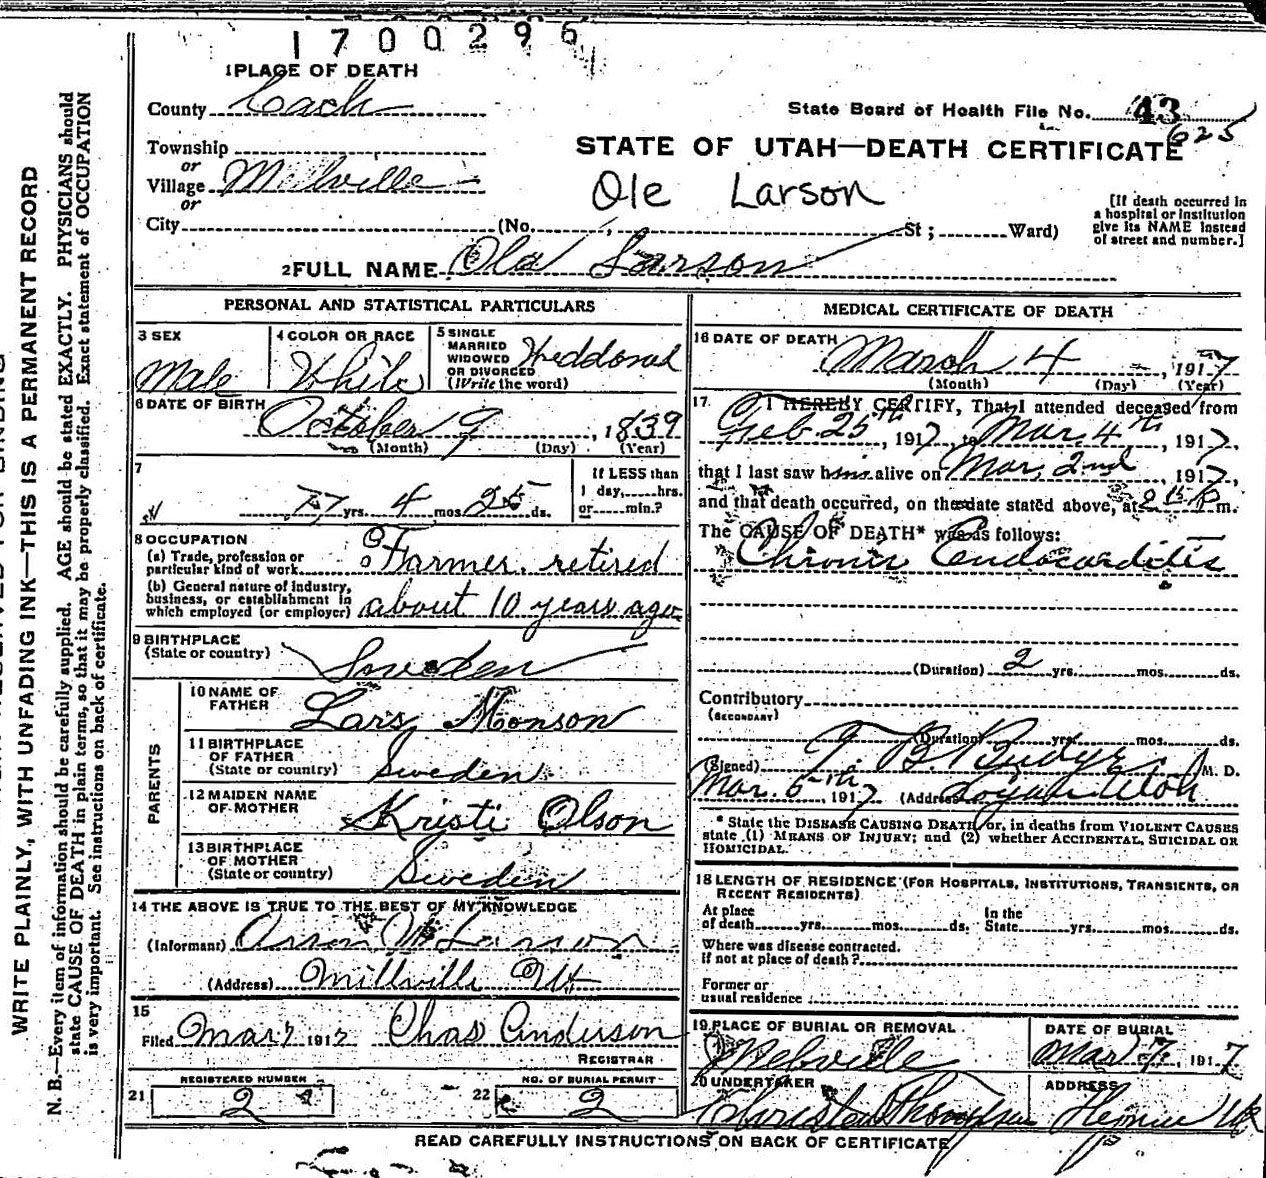 1700296
1 PLACE OF DEATH
County Cach
State Board of Health File No. 43
625
Township
STATE OF UTAH—DEATH CERTIFICATE
or
Village Millville
Ole Larson
or
City (No. St; Ward)
[If death occurred in
a hospital or institution
give its NAME instead
of street and number.]
2 FULL NAME Ola Larson
PERSONAL AND STATISTICAL PARTICULARS
3 SEX
Male
4 COLOR OR RACE
White
5 SINGLE
MARRIED
WIDOWED
OR DIVORCED
(Write the word)
6 DATE OF BIRTH
October 9, 1839
(Month) (Day) (Year)
7
77 yrs. 4 mos. 25 ds.
If LESS than
1 day, hrs.
or min.?
8 OCCUPATION
(a) Trade, profession or
particular kind of work Farmer. retired
(b) General nature of industry,
business, or establishment in
which employed (or employer) about 10 years ago
9 BIRTHPLACE
(State or country) Sweden
PARENTS
10 NAME OF
FATHER Lars Monson
11 BIRTHPLACE
OF FATHER
(State or country) Sweden
12 MAIDEN NAME
OF MOTHER Kristi Olson
13 BIRTHPLACE
OF MOTHER
(State or country) Sweden
14 THE ABOVE IS TRUE TO THE BEST OF MY KNOWLEDGE
(Informant) Larson
(Address) Millville Ut
15
Filed Mar 7 1917 Chas Anderson
REGISTRAR
21 REGISTERED NUMBER
2
22 NO. OF BURIAL PERMIT
2
MEDICAL CERTIFICATE OF DEATH
16 DATE OF DEATH March 4, 1917
(Month) (Day) (Year)
17. I HEREBY CERTIFY, That I attended deceased from
Feb. 25th, 1917, to Mar. 4th, 1917,
that I last saw him alive on Mar. 2nd, 1917,
and that death occurred, on the date stated above, at m.
The CAUSE OF DEATH* was as follows:
Chronic Endocarditis
(Duration) 2 yrs. mos. ds.
Contributory
(SECONDARY)
(Duration) yrs. mos. ds.
(Signed) T. B. Budge M. D.
Mar. 6th, 1917 (Address) Logan Utah
* State the DISEASE CAUSING DEATH, or, in deaths from VIOLENT CAUSES
state (1) MEANS OF INJURY; and (2) whether ACCIDENTAL, SUICIDAL OR
HOMICIDAL.
18 LENGTH OF RESIDENCE (FOR HOSPITALS, INSTITUTIONS, TRANSIENTS, OR
RECENT RESIDENTS)
At place
of death yrs. mos. ds.
In the
State yrs. mos. ds.
Where was disease contracted.
If not at place of death?
Former or
usual residence
19 PLACE OF BURIAL OR REMOVAL
DATE OF BURIAL
Mar 7, 1917
20 UNDERTAKER
ADDRESS
READ CAREFULLY INSTRUCTIONS ON BACK OF CERTIFICATE
WRITE PLAINLY, WITH UNFADING INK—THIS IS A PERMANENT RECORD
N. B.—Every item of information should be carefully supplied. AGE should be stated EXACTLY. PHYSICIANS should
state CAUSE OF DEATH in plain terms, so that it may be properly classified. Exact statement of OCCUPATION
is very important. See instructions on back of certificate.